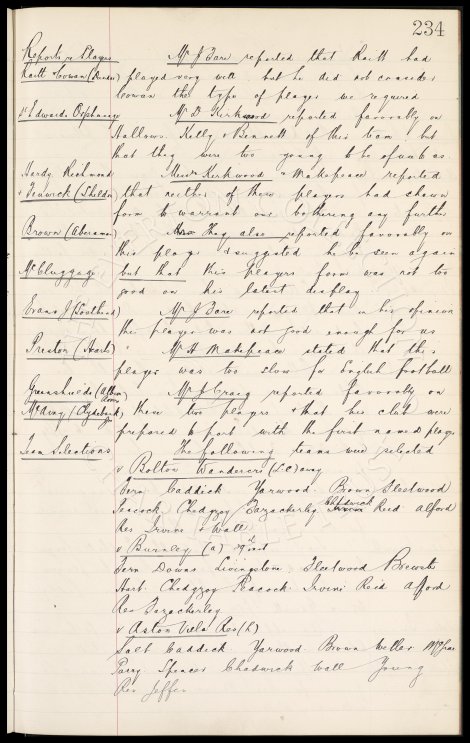 234
Reports re Players Mr J Bare reported that Raitt had
Raitt Cowan (Dundee) played very well but he did not consider
Cowan the type of player we required
St Edwards Orphanage Mr D Kirkwood reported favorably on
Hallows. Kelly & Bennett of this team but
that they were too young to be of use to us.
Hardy Richmond Messrs Kirkwood & Makepeace reported
& Fenwick (Shildon) that neither of these players had shown
form to warrant our bothering any further
Brown (Aberaman) Hay also reported favorably on
this player & suggested he be seen again
McCluggage but that this players form was not too
good on his latest display
Evans J (Southend) Mr J Bare reported that in his opinion
the player was not good enough for us
Preston (Hearts) " Mr H Makepeace stated that this
player was too slow for English football
Greenshields (Albion Mr J Craig reported favorably on
(Clydebank) these two players & that his club were
prepared to part with the first named player
Team Selections The following teams were selected
v Bolton Wanderers (L.C) away
Fern Caddick Yarwood. Brown Fleetwood
Peacock Chedgzoy Bazackerley Chadwick Irvine Reid Alford
Res Irvine & Wall
v Burnley (a) inst
Fern Downs Livingstone Fleetwood Brewster
Hart. Chedgzoy Peacock. Irvine Reid Alford
Res Bazackerley
v Aston Villa Res (h)
Salt Caddick Yarwood. Brown Weller
Parry Spencer Chadwick Wall Young
Res Jeffer